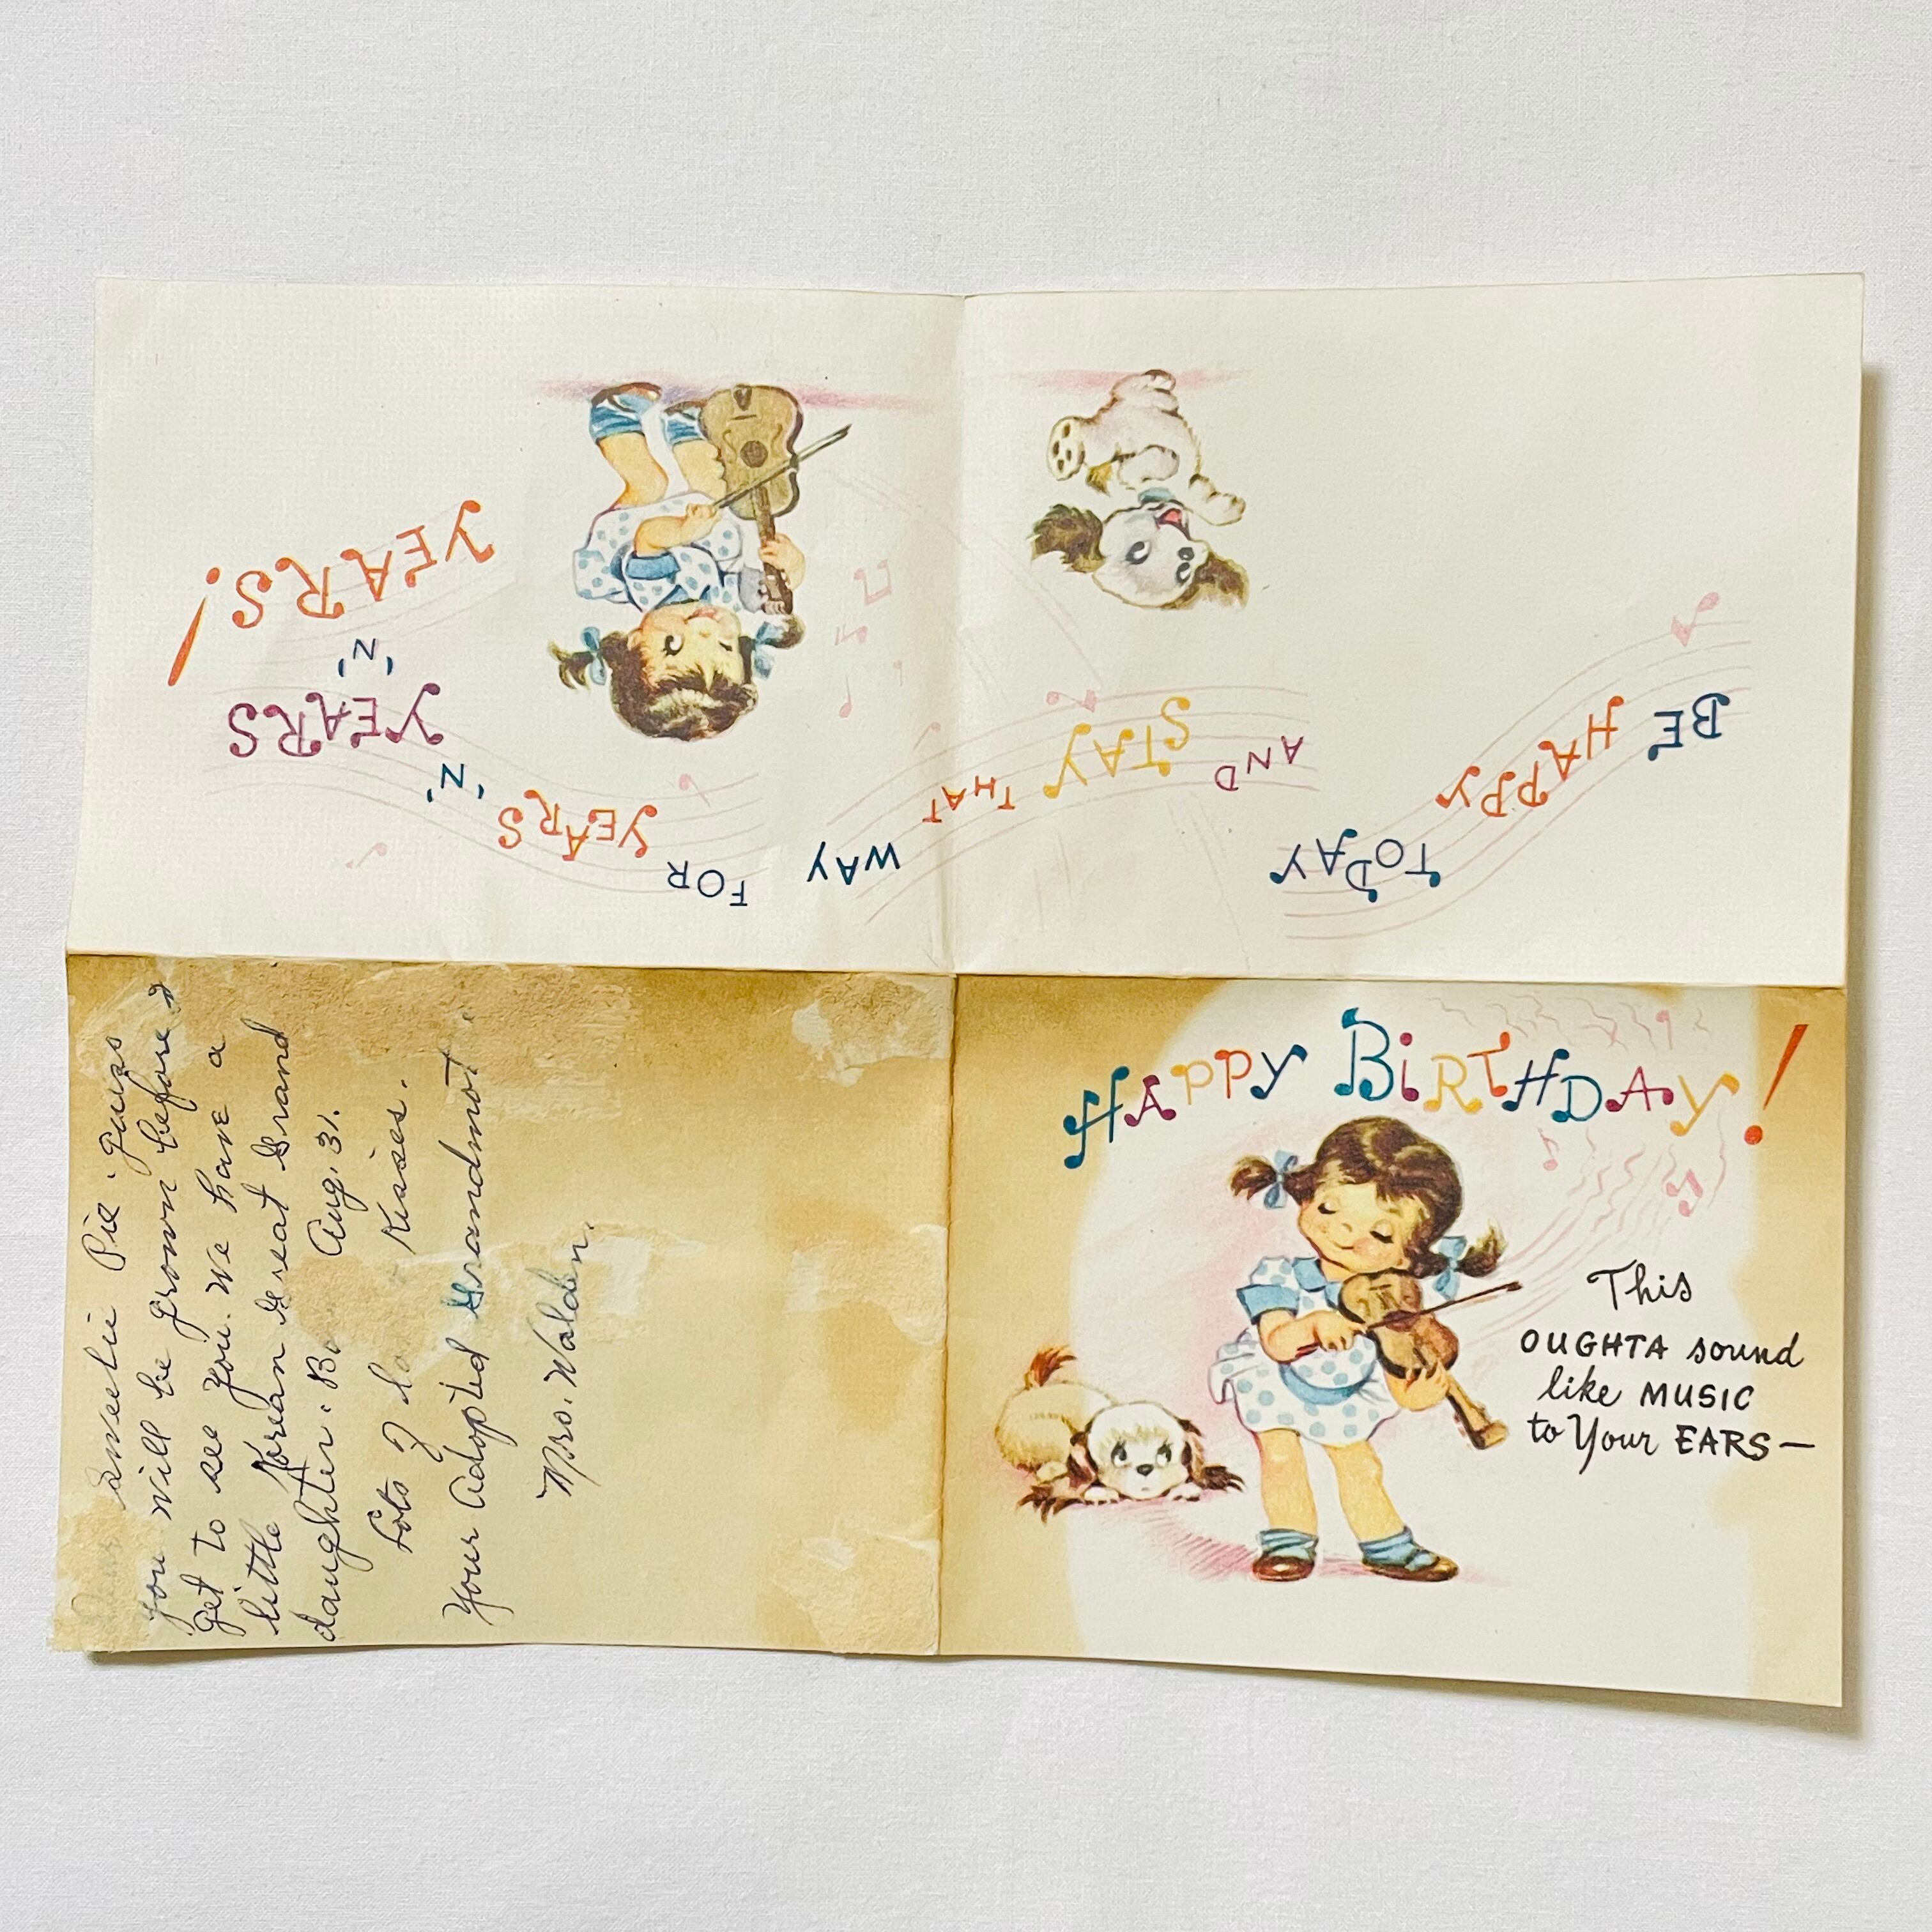 HAPPY BIRTHDAY!
This
OUGHTA sound
like MUSIC
to Your EARS—
BE HAPPY
TODAY
AND STAY THAT
WAY FOR
YEARS 'N'
YEARS
'N'
YEARS!
Dear sweetie Pie. Guess
you will be grown before I
get to see you. We have a
little Korean Great Grand
daughter. Aug. 31.
Lots of Kisses.
Your Adopted Grandmot
Mrs. Walden.